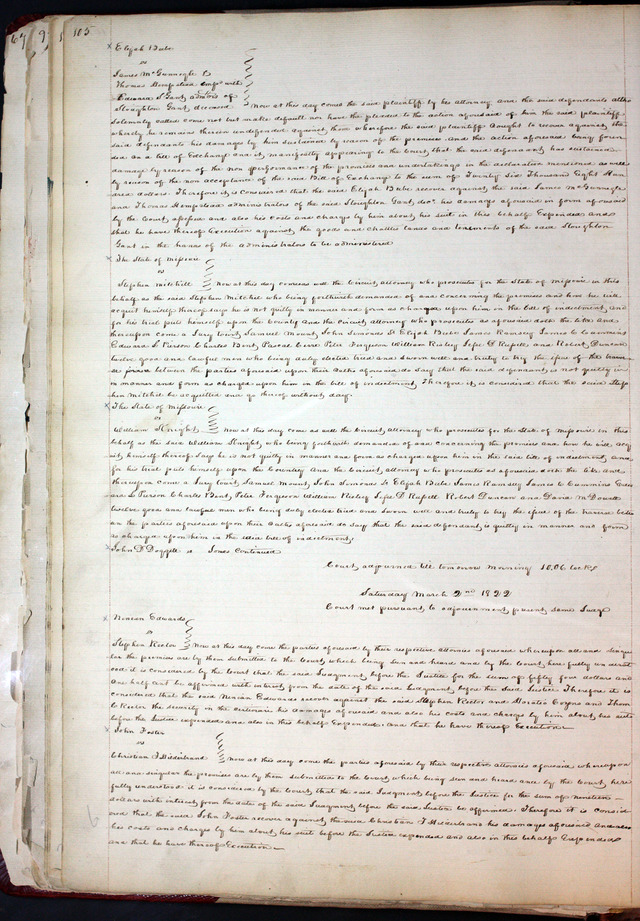 105
Elijah Bebe
vs
James McGunnegle &
Thomas Hempstead
Edward S Gantt admtors of
Stoughton Gantt deceased Now at this day comes the said plaintiff by his attorney and the said defendants altho
solemnly called come not but make default nor have they pleaded to the action aforesaid of him the said plaintiff
whereby he remains therein undefended against them wherefore the said plaintiff ought to recover against the
said defendants his damages by him sustained by reason of the premises and the action aforesaid being foun-
ded on a bill of Exchange and it manifestly appearing to the Court that the said defendants has sustained
damage by reason of the non performance of the promises and undertakings in the declaration mentioned as well
by reason of the non acceptance of the said Bill of Exchange to the sum of Twenty Six Thousand Eight Hun
dred dollars. Therefore it is Considered that the said Elijah Bebe recover against the said James McGunnegle
and Thomas Hempstead administrators of the said Stoughton Gantt, decd. his damages aforesaid in form aforesaid
by the Court assessed and also his costs and charges by him about his suit in this behalf Expended and
that he have thereof Execution against the goods and chattles lands and tenements of the said Stoughton
Gantt in the hands of the administrators to be administered
The State of Missouri
vs
Stephen Mitchell Now at this day comes as well the Circuit attorney who prosecutes for the State of Missouri in this
behalf as the said Stephen Mitchel who being forthwith demanded of and concerning the premises and how he will
acquit himself thereof says he is not guilty in manner and form as charged upon him in the bill of indictment, and
for his trial puts himself upon the Country And the Circuit attorney who prosecutes as aforesaid doth the like. And
thereupon came a Jury towit, Samuel Mount, John Simonds Jr Elijah Bebe James Ramsey James C Cummins
Edward S Pierson Charles Bent Pascal Cerre Peter Ferguson William Risley Jesse D Russell and Robert Duncan
twelve good and lawful men who being duly elected tried and sworn well and truly to try the issue of the
between the parties aforesaid upon their oaths aforesaid do say that the said defendant is not guilty in
in manner and form as charged upon him in the bill of indictment, Therefore it is considered that the said Steph
hen Mitchel be acquitted and go thereof without day.
The State of Missouri
vs
William Knight Now at this day come as well the Circuit attorney who prosecutes for the State of Missouri in this
behalf as the said William Knight, who being forthwith demanded of and concerning the premises and how he will acq
uit himself thereof says he is not guilty in manner and form as charged upon him in the said bill of indictment, and
for his trial puts himself upon the Country And the Circuit attorney who prosecutes as aforesaid doth the like. And
thereupon came a Jury towit, Samuel Mount, John Simonds Jr Elijah Bebe James Ramsey James C Cummins Edw
ard S Pierson Charles Bent, Peter Ferguson William Risley Jesse D Russell Robert Duncan and David McDowell
twelve good and lawful men who being duly elected tried and sworn well and truly to try the issue of the traverse betw
en the parties aforesaid upon their oaths aforesaid do say that the said defendant is guilty in manner and form
as charged upon him in the said bill of indictment.
John D Doggett vs Jones Continued
Court adjourned till tomorrow morning 10 OClock
Saturday March 2nd 1822
Court met pursuant to adjournment present same Judge
Ninian Edwards
vs
Stephen Rector Now at this day come the parties aforesaid by their respective attornies aforesaid whereupon all and singu
lar the premises are by them submitted to the Court which being seen and heard and by the Court here fully underst
ood it is considered by the Court that the said Judgment before the Justice for the sum of fifty four dollars and
one half cent be affirmed with interest from the date of the said Judgment before the said Justice Therefore it is
considered that the said Ninian Edwards recover against the said Stephen Rector and Horatio Cozens and Thom
C Rector the security in the his damages aforesaid and also his costs and charges by him about his suit
before the Justice expended and also in this behalf Expended And that he have thereof Execution
John Foster
vs
Christian F Hilderbrand Now at this day come the parties aforesaid by their respective attornies aforesaid whereupon
all and singular the premises are by them submitted to the Court which being seen and heard and by the Court here
fully understood it is considered by the Court that the said Judgment before the Justice for the sum of nineteen
dollars with interest from the date of the said Judgment before the said Justice be affirmed. Therefore it is consid
ered that the said John Foster recover against the said Christian F Hilderbrand his damages aforesaid and also
his costs and charges by him about his suit before the Justice expended and also in this behalf Expended
and that he have thereof Execution